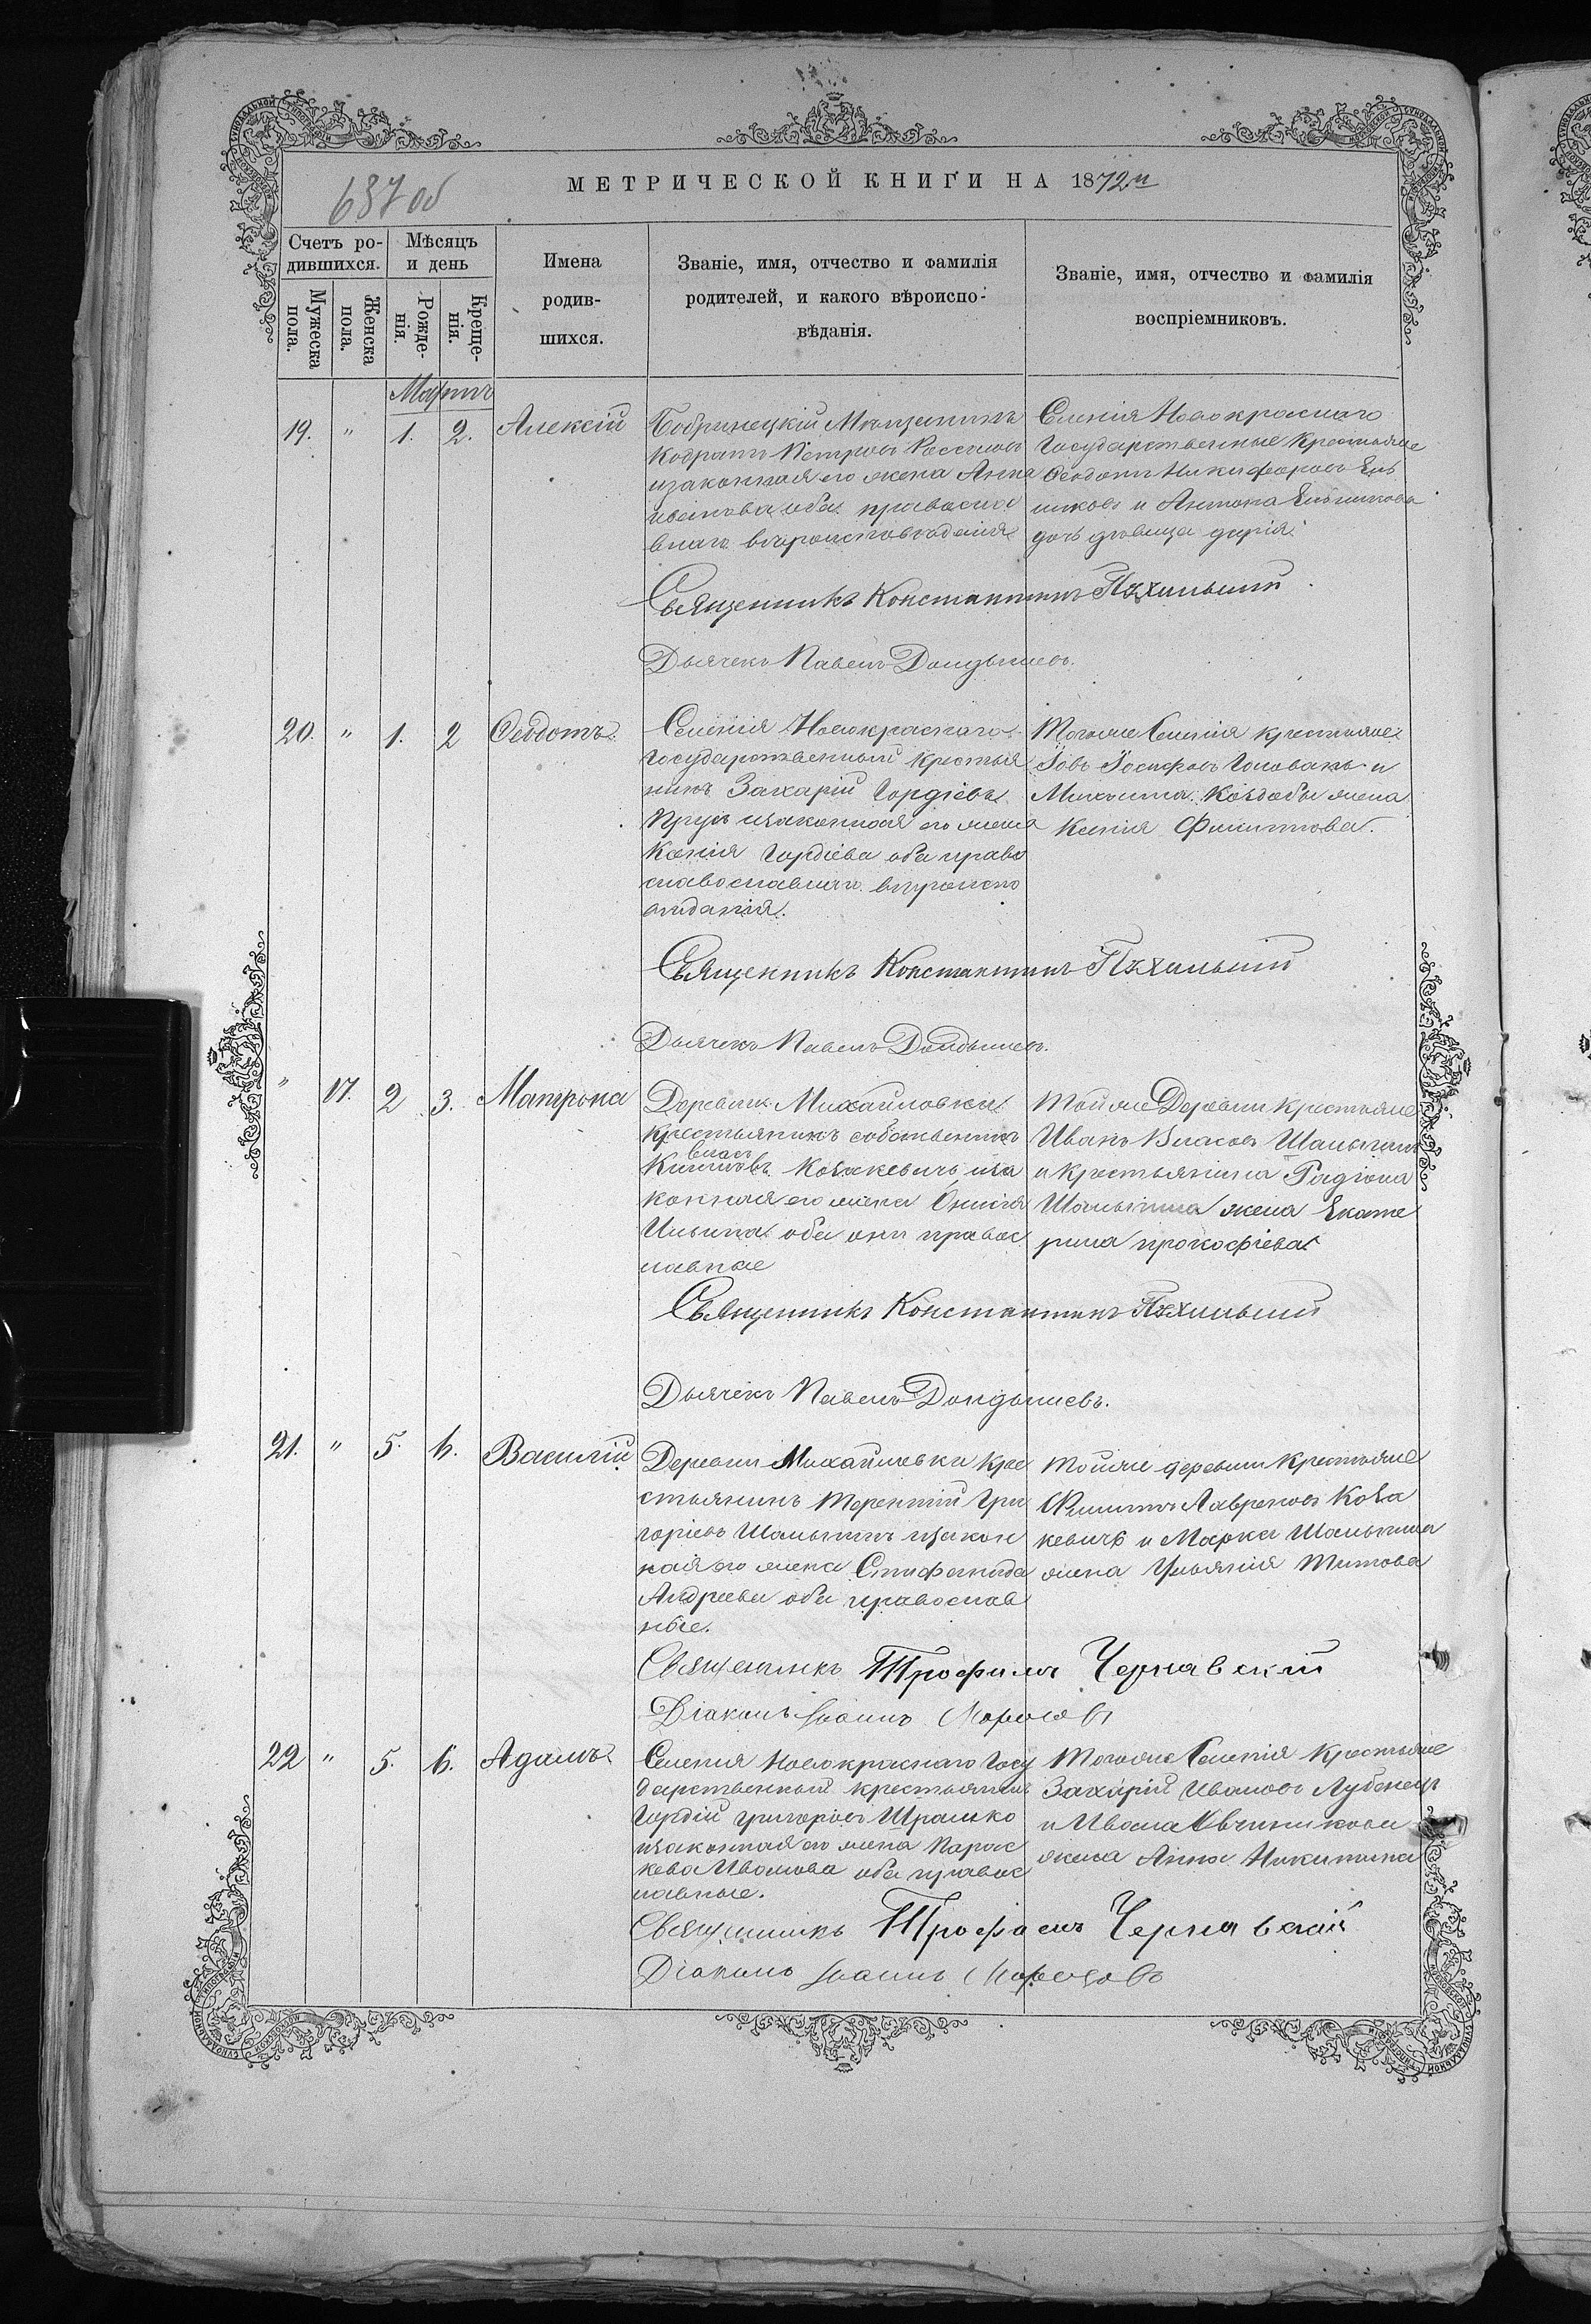 637 об
МЕТРИЧЕСКОЙ КНИГИ НА 1872 г
Счетъ ро-
дившихся.
Мѣсяцъ
и день
Мужеска
пола.
Женска
пола.
Рожде-
нія.
Креще-
нія.
Имена
родив-
шихся.
Званіе, имя, отчество и фамилія
родителей, и какого вѣроиспо-
вѣданія.
Званіе, имя, отчество и фамилія
воспріемниковъ.
Мартъ
19. " 1. 2. Алексій
Бобринецкій Мѣщанинъ
Кодратъ Петровъ
изаконная его жена Анна
иванова оба правосла
внаго вѣроисповѣданія
Селенія Новокраснаго
Государственные Крестьяне
Феодотъ Никифоровъ
и Антона
дочь дѣвица дарія.
Священникъ Константинъ
Дьячекъ Павелъ
20. " 1. 2 Феодотъ
Селенія Новокраснаго
государственный крестья
нинъ Захарій Гордіевъ
изаконная его жена
Ксенія Гордіева оба право
славославнаго вѣроиспо
вѣданія.
Тогоже Селенія крестьяне
Іовъ Іосифовъ Головань и
жена
Ксенія Филипова.
Священникъ Константинъ
Дьячекъ Павелъ
" 17. 2 3. Матрона
Деревни Михайловки
крестьянинъ собственникъ
Козакевичъ иза
конная его жена
Ильина оба они правос
лавные
Тойже Деревни крестьяне
Иванъ Власовъ Шалыгинъ
и крестьянина Радіона
Шалыгина жена Екате
рина прокофіева
Священникъ Константинъ
Дьячекъ Павелъ
21. " 5. 6. Василій
Деревни Михайловки кре
стьянинъ Терентій Гри
горіевъ Шалыгинъ изакон
ная его жена Стефанида
Андреева оба православ
ные.
Тойже деревни крестьяне
Филипъ Лавреновъ Коза
кевичъ и Марка Шалыгина
жена Ульянія Титова
Священникъ Трофимъ Чернавскій
Діаконъ Іоаннъ Морозовъ
22 " 5. 6. Адамъ
Селенія Новокраснаго Госу
дарственный крестьянинъ
Гордій григоріевъ
изаконная его жена Парас
кева Иванова оба правос
лавные.
Тогоже Селенія Крестьяне
Захарій Ивановъ Лубенецъ
и Ивана Овчиникова
жена Анна Никитина
Священникъ Трофимъ Чернавскій
Діаконъ Іоаннъ Морозовъ